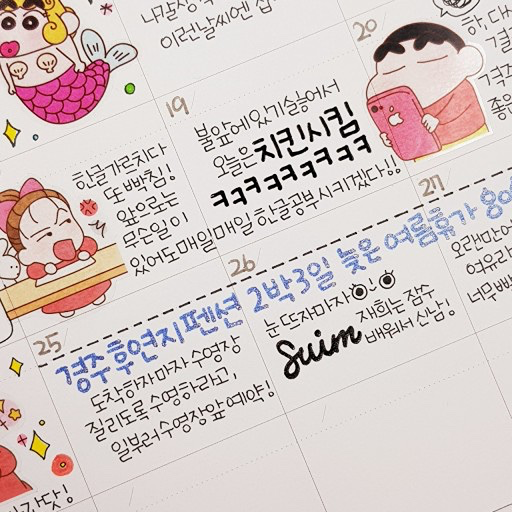 이런날씨엔
20
19
불앞에 있기 싫어서
오늘은 치킨시킴
ㅋㅋㅋㅋㅋㅋㅋㅋ
한글가르치다
또 빡침!
앞으로는
무슨일이
있어도매일매일 한글공부시키겠다!!
27
26
경주후연지펜션 2박3일 늦은 여름휴가
25
도착하자마자 수영장
질리도록 수영하라고,
일부러 수영장앞 예약!
눈뜨자마자
Suim
재희는 잠수
배워서 신남!
오랜만에